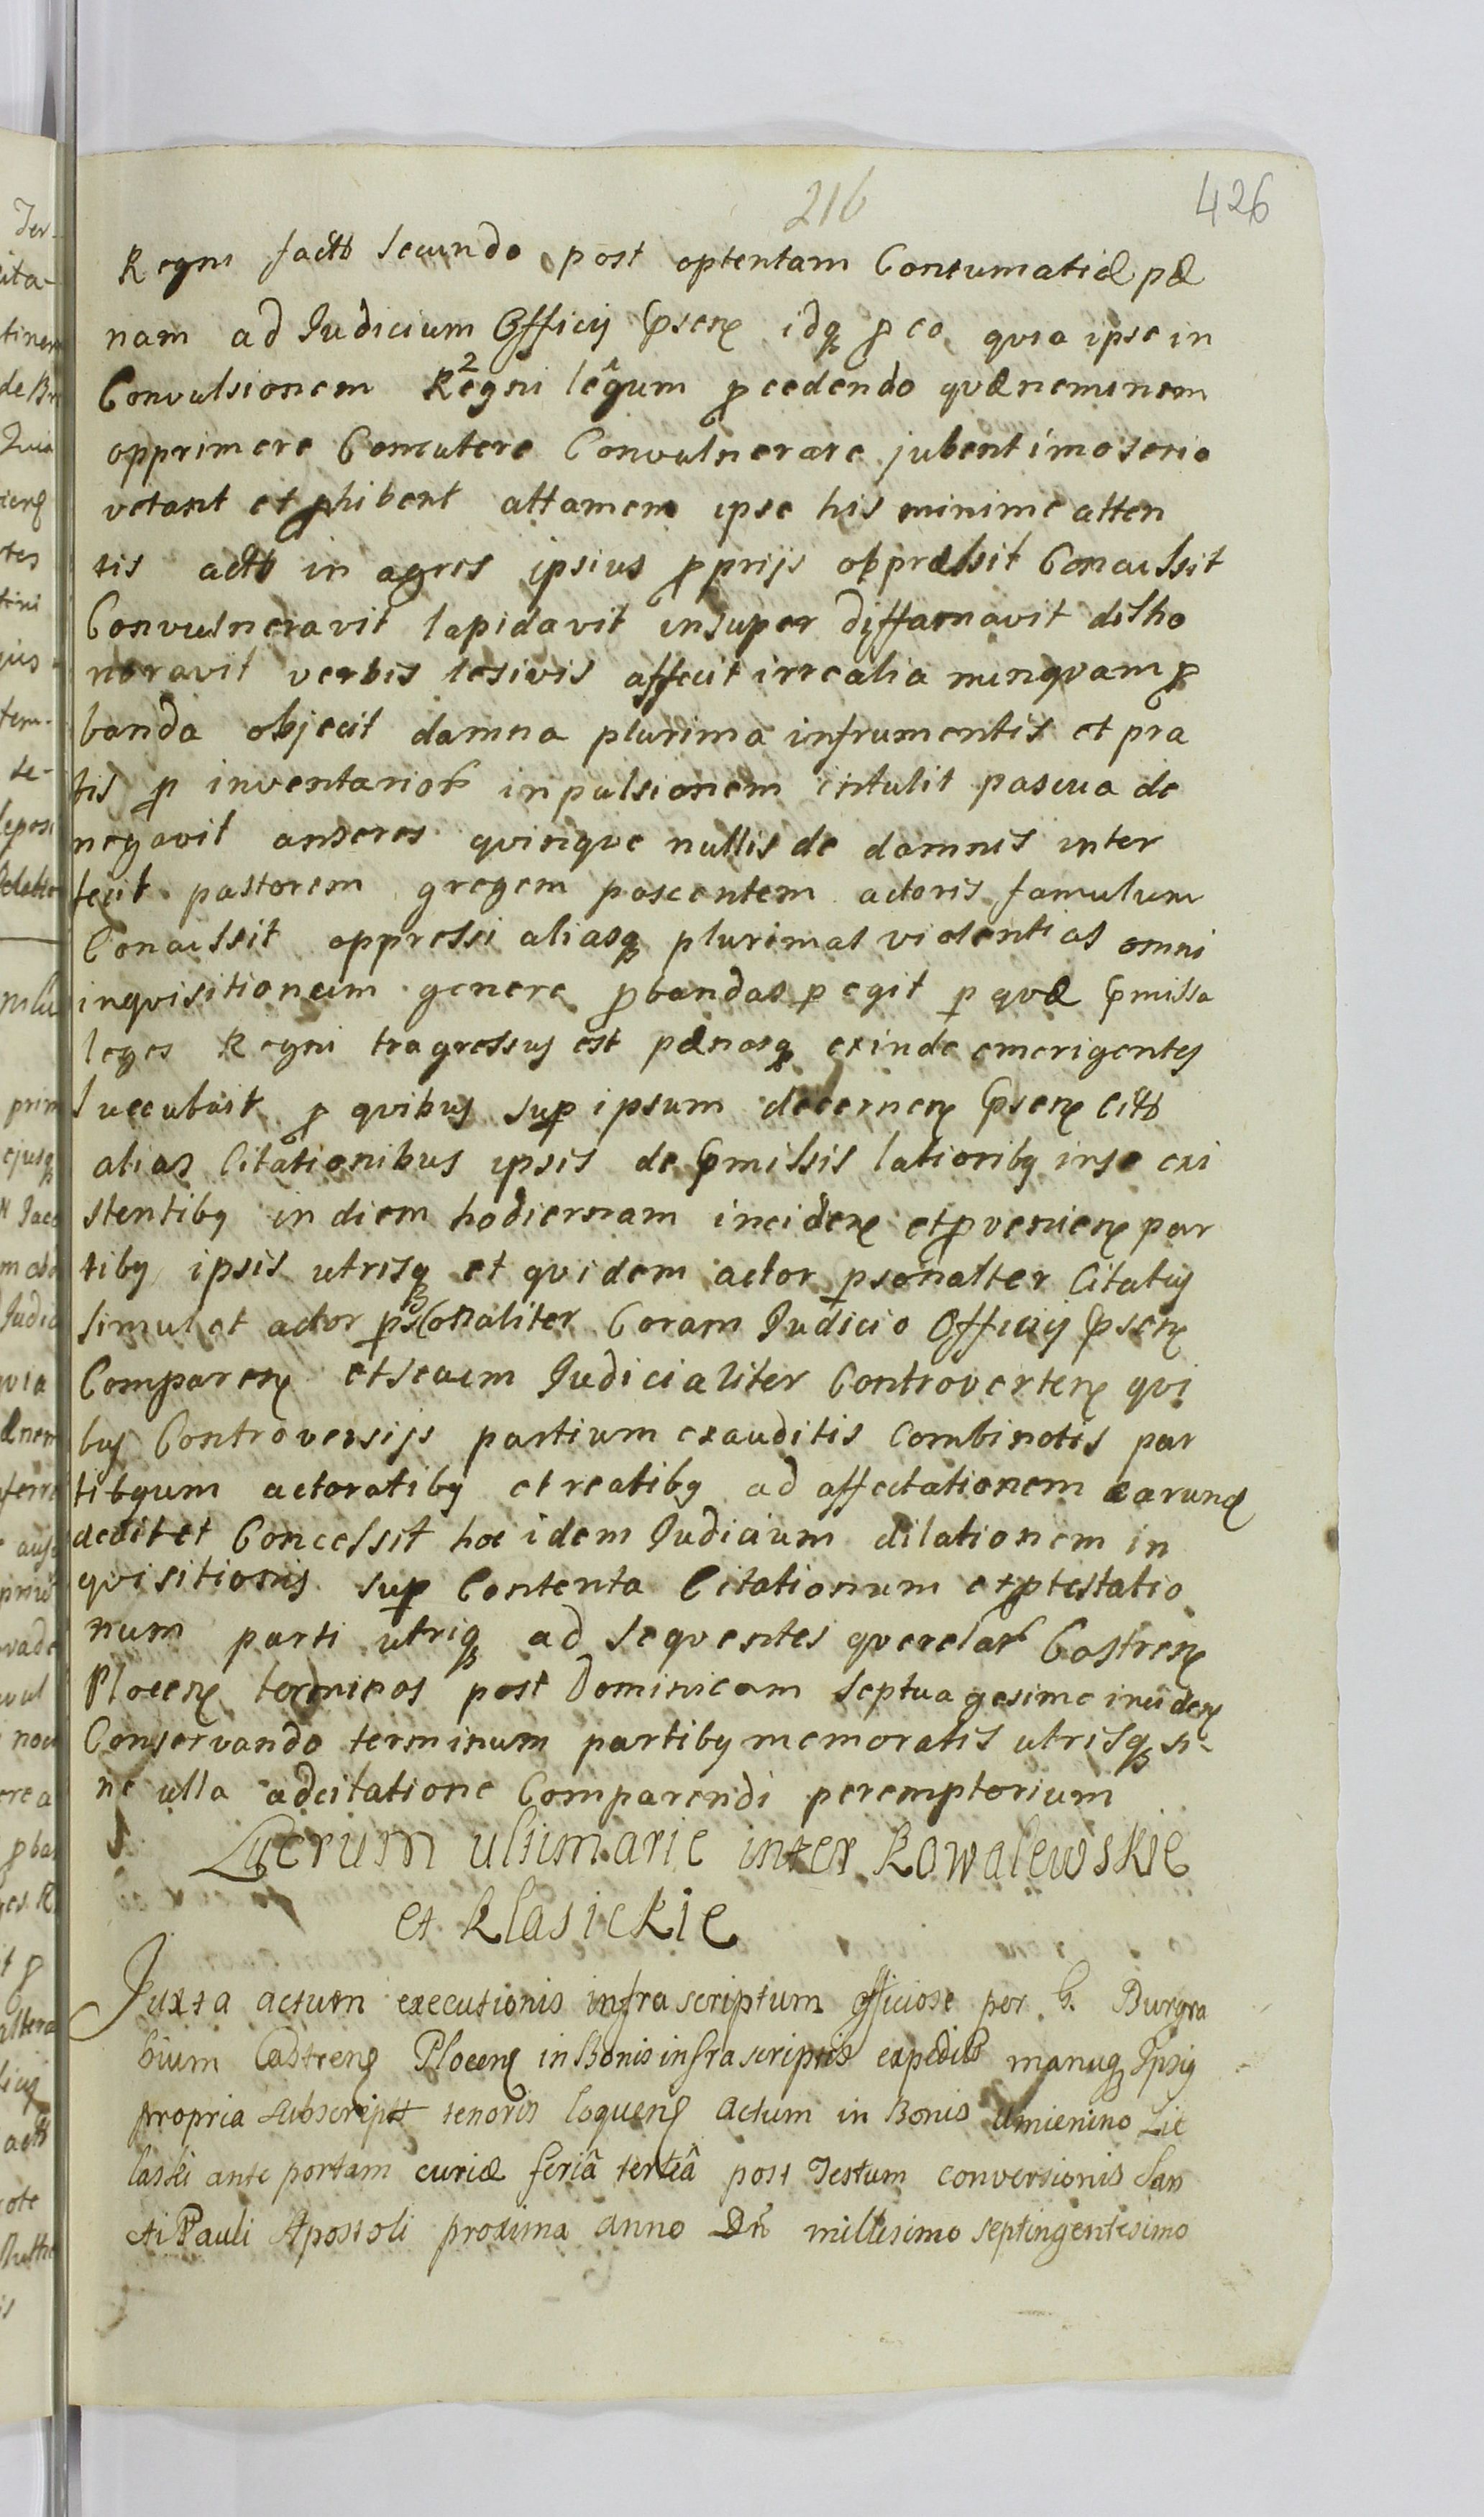 216
426
Regni factt secundo post optentam Contumatiæ pæ
nam ad Judicium Officij Pſenſ idqꝫ ꝓ eo quia ipse in
Convulsionem Regni legum ꝓcedendo quæ neminem
opprimere Concutere Convulnerare jubent imo serio
vetant et ꝓhibent attamen ipse his minime atten
tis actt in agros ipsius ꝓprijs obpræssit Concussit
Convulneravit lapidavit insuper diffamavit disho
noravit verbis lesivis affecit irrealia nunquam ꝓ
banda objecit damna plurima in frumentis et pra
tis ꝑ inventarioꝝ inpulsionem intulit pascua de
negavit anseres quinque nullis de damnis inter
fecit pastorem gregem pascentem actoris famulum
Concussit oppressi aliasqꝫ plurimas violentias omni
inquisitionum genere ꝓbandas ꝑegit ꝑ quæ Pmissa
leges Regni tragressus est pænasqꝫ exinde emerigentes
succubuit ꝓ quibus suꝑ ipsum decernenſ Pſenſ citt
alias Citationibus ipsis de Pmissis lationibꝯ in se exi
stentibꝯ in diem hodiernam incidenſ et ꝓvenienſ par
tibꝯ ipsis utrisqꝫ et quidem actor ꝑsonalter Citatus
simul et actor ꝑsonaliter Coram Judicio Officij Pſenſ
Comparenſ et secum Judicialiter Controvertenſ qui
bus Controversijs partium exauditis Combinatis par
tibꝯum actoratibꝯ et reatibꝯ ad affectationem earunđ
dedit et Concessit hoc idem Judicium dilationem in
quisitionis suꝑ Contenta Citationum et ꝓtestatio
num parti utriqꝫ ad sequentes querelaꝝ Castrenſ
Plocenſ terminos post Dominicam Septuagesime incidenſ
Conservando terminum partibꝯ memoratis utrisqꝫ si-
ne ulla adcitatione Comparendi peremptorium
Lucrum ultimarie inter Kowalewskie
et Klasickie
Juxta actum executionis infra scriptum officiose per G. Burgra
bium Castrenſ Plocenſ in Bonis infra scriptis expeditt manuqꝫ Ipsiꝯ
propria subscriptt tenoris loquenſ Actum in Bonis Umienino Zie
laski ante portam curiæ feriâ tertiâ post Festum conversionis San
cti Pauli Apostoli proxima anno Dñi millesimo septingentesimo